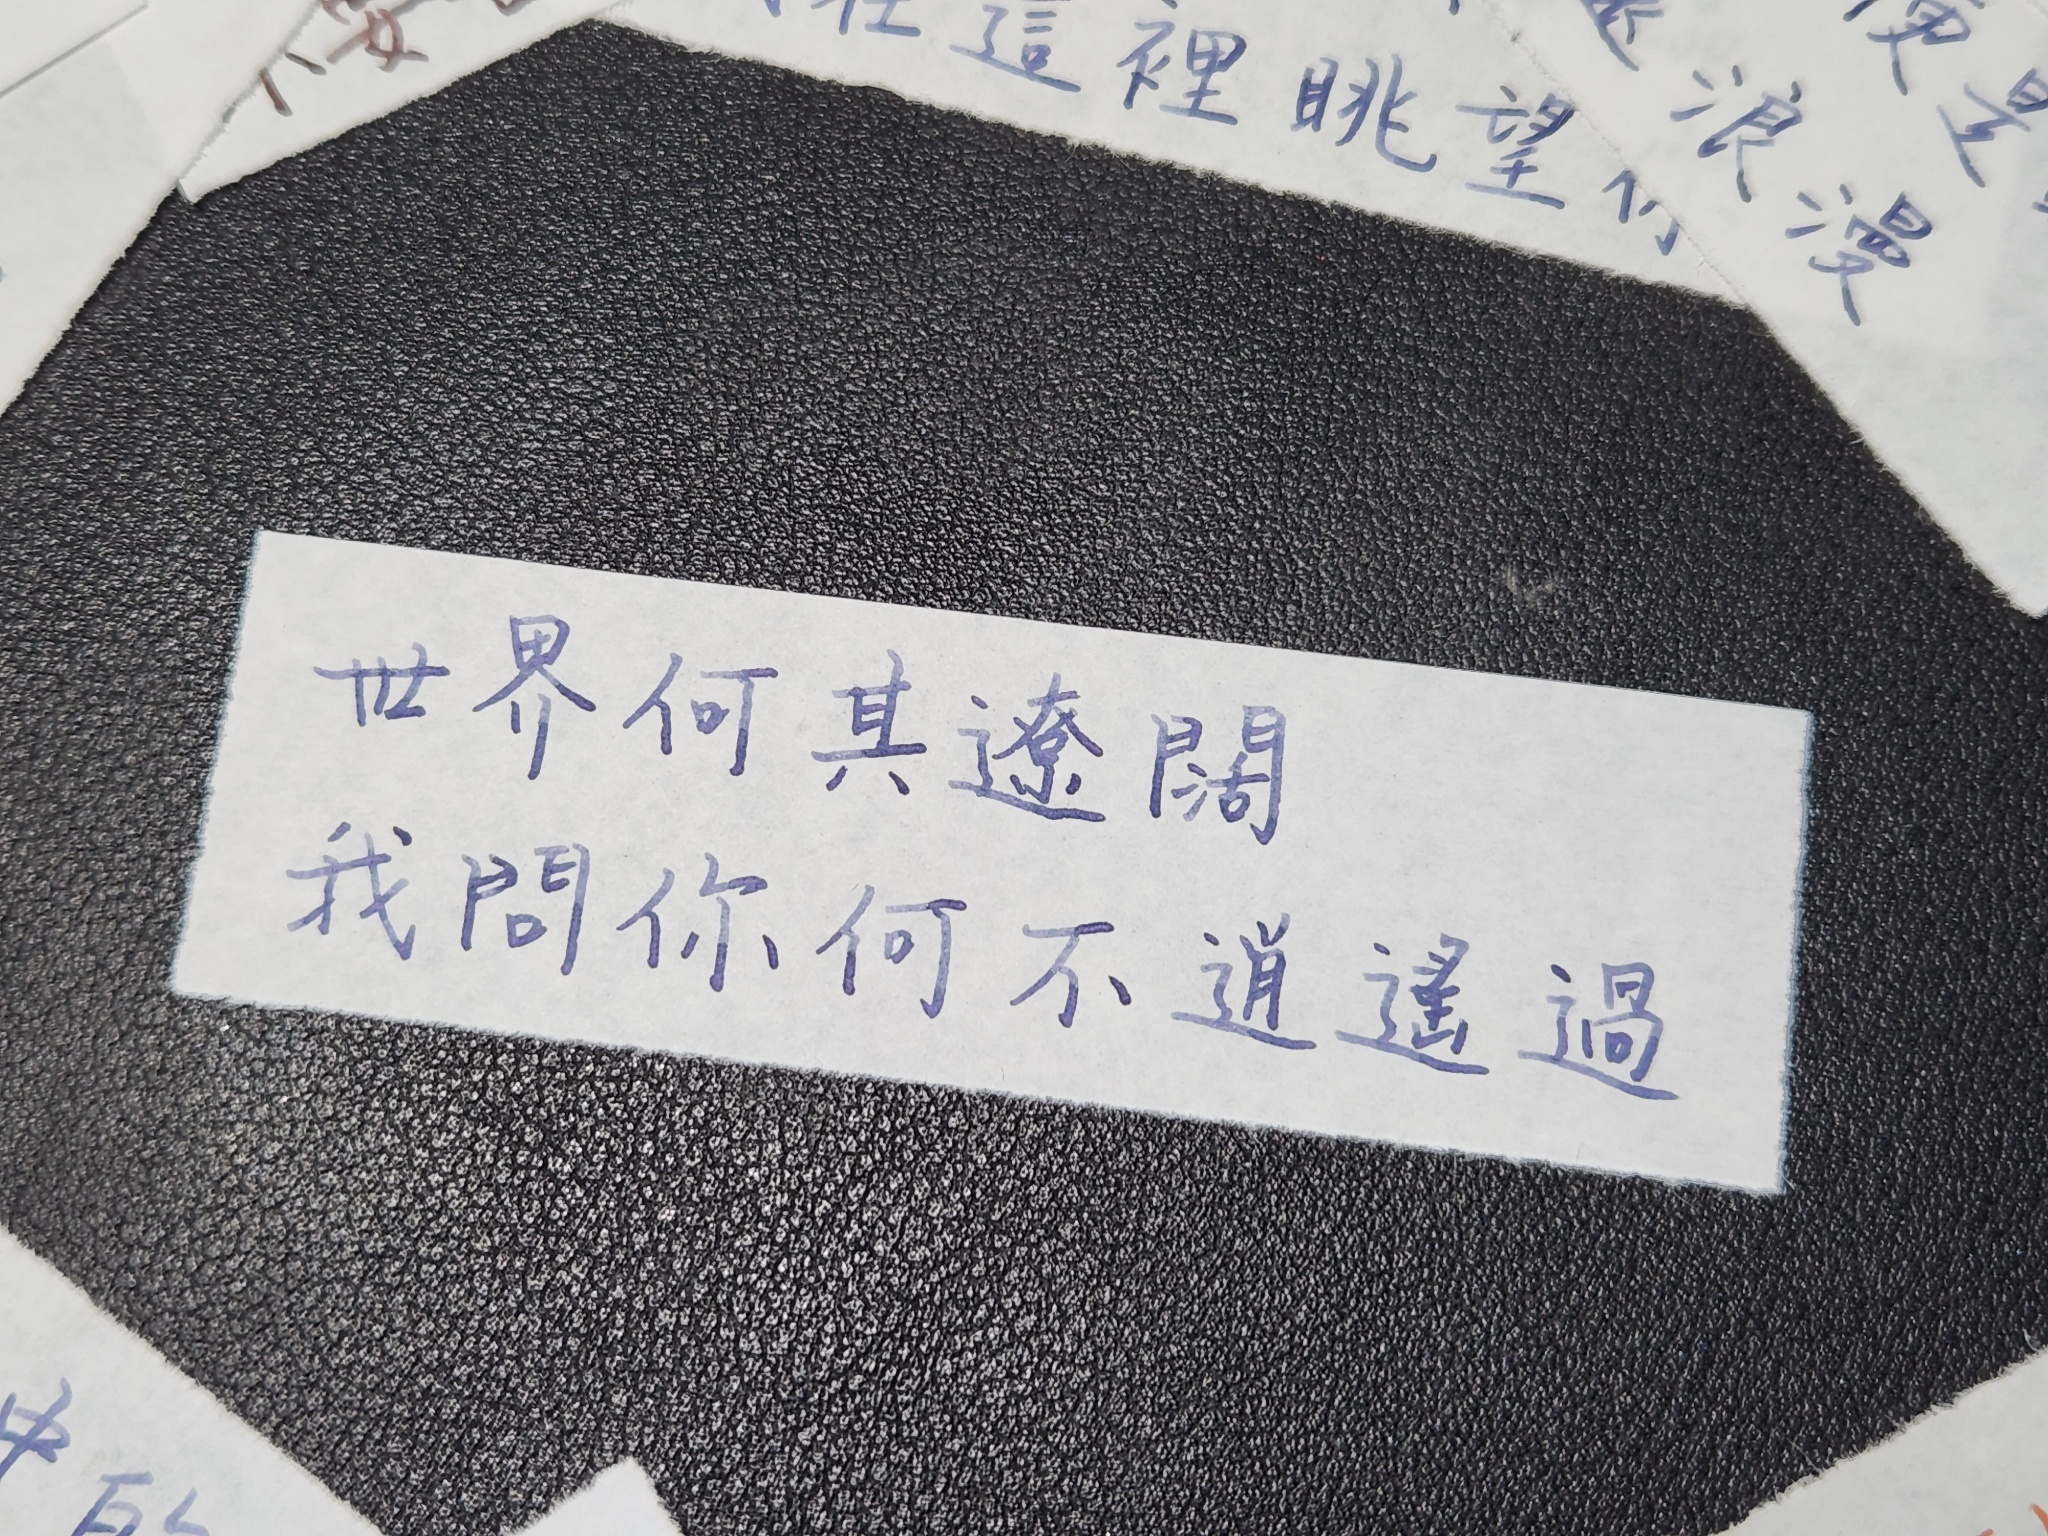 在這裡眺望
浪漫
便是
世界何其遼闊
我問你何不逍遙過